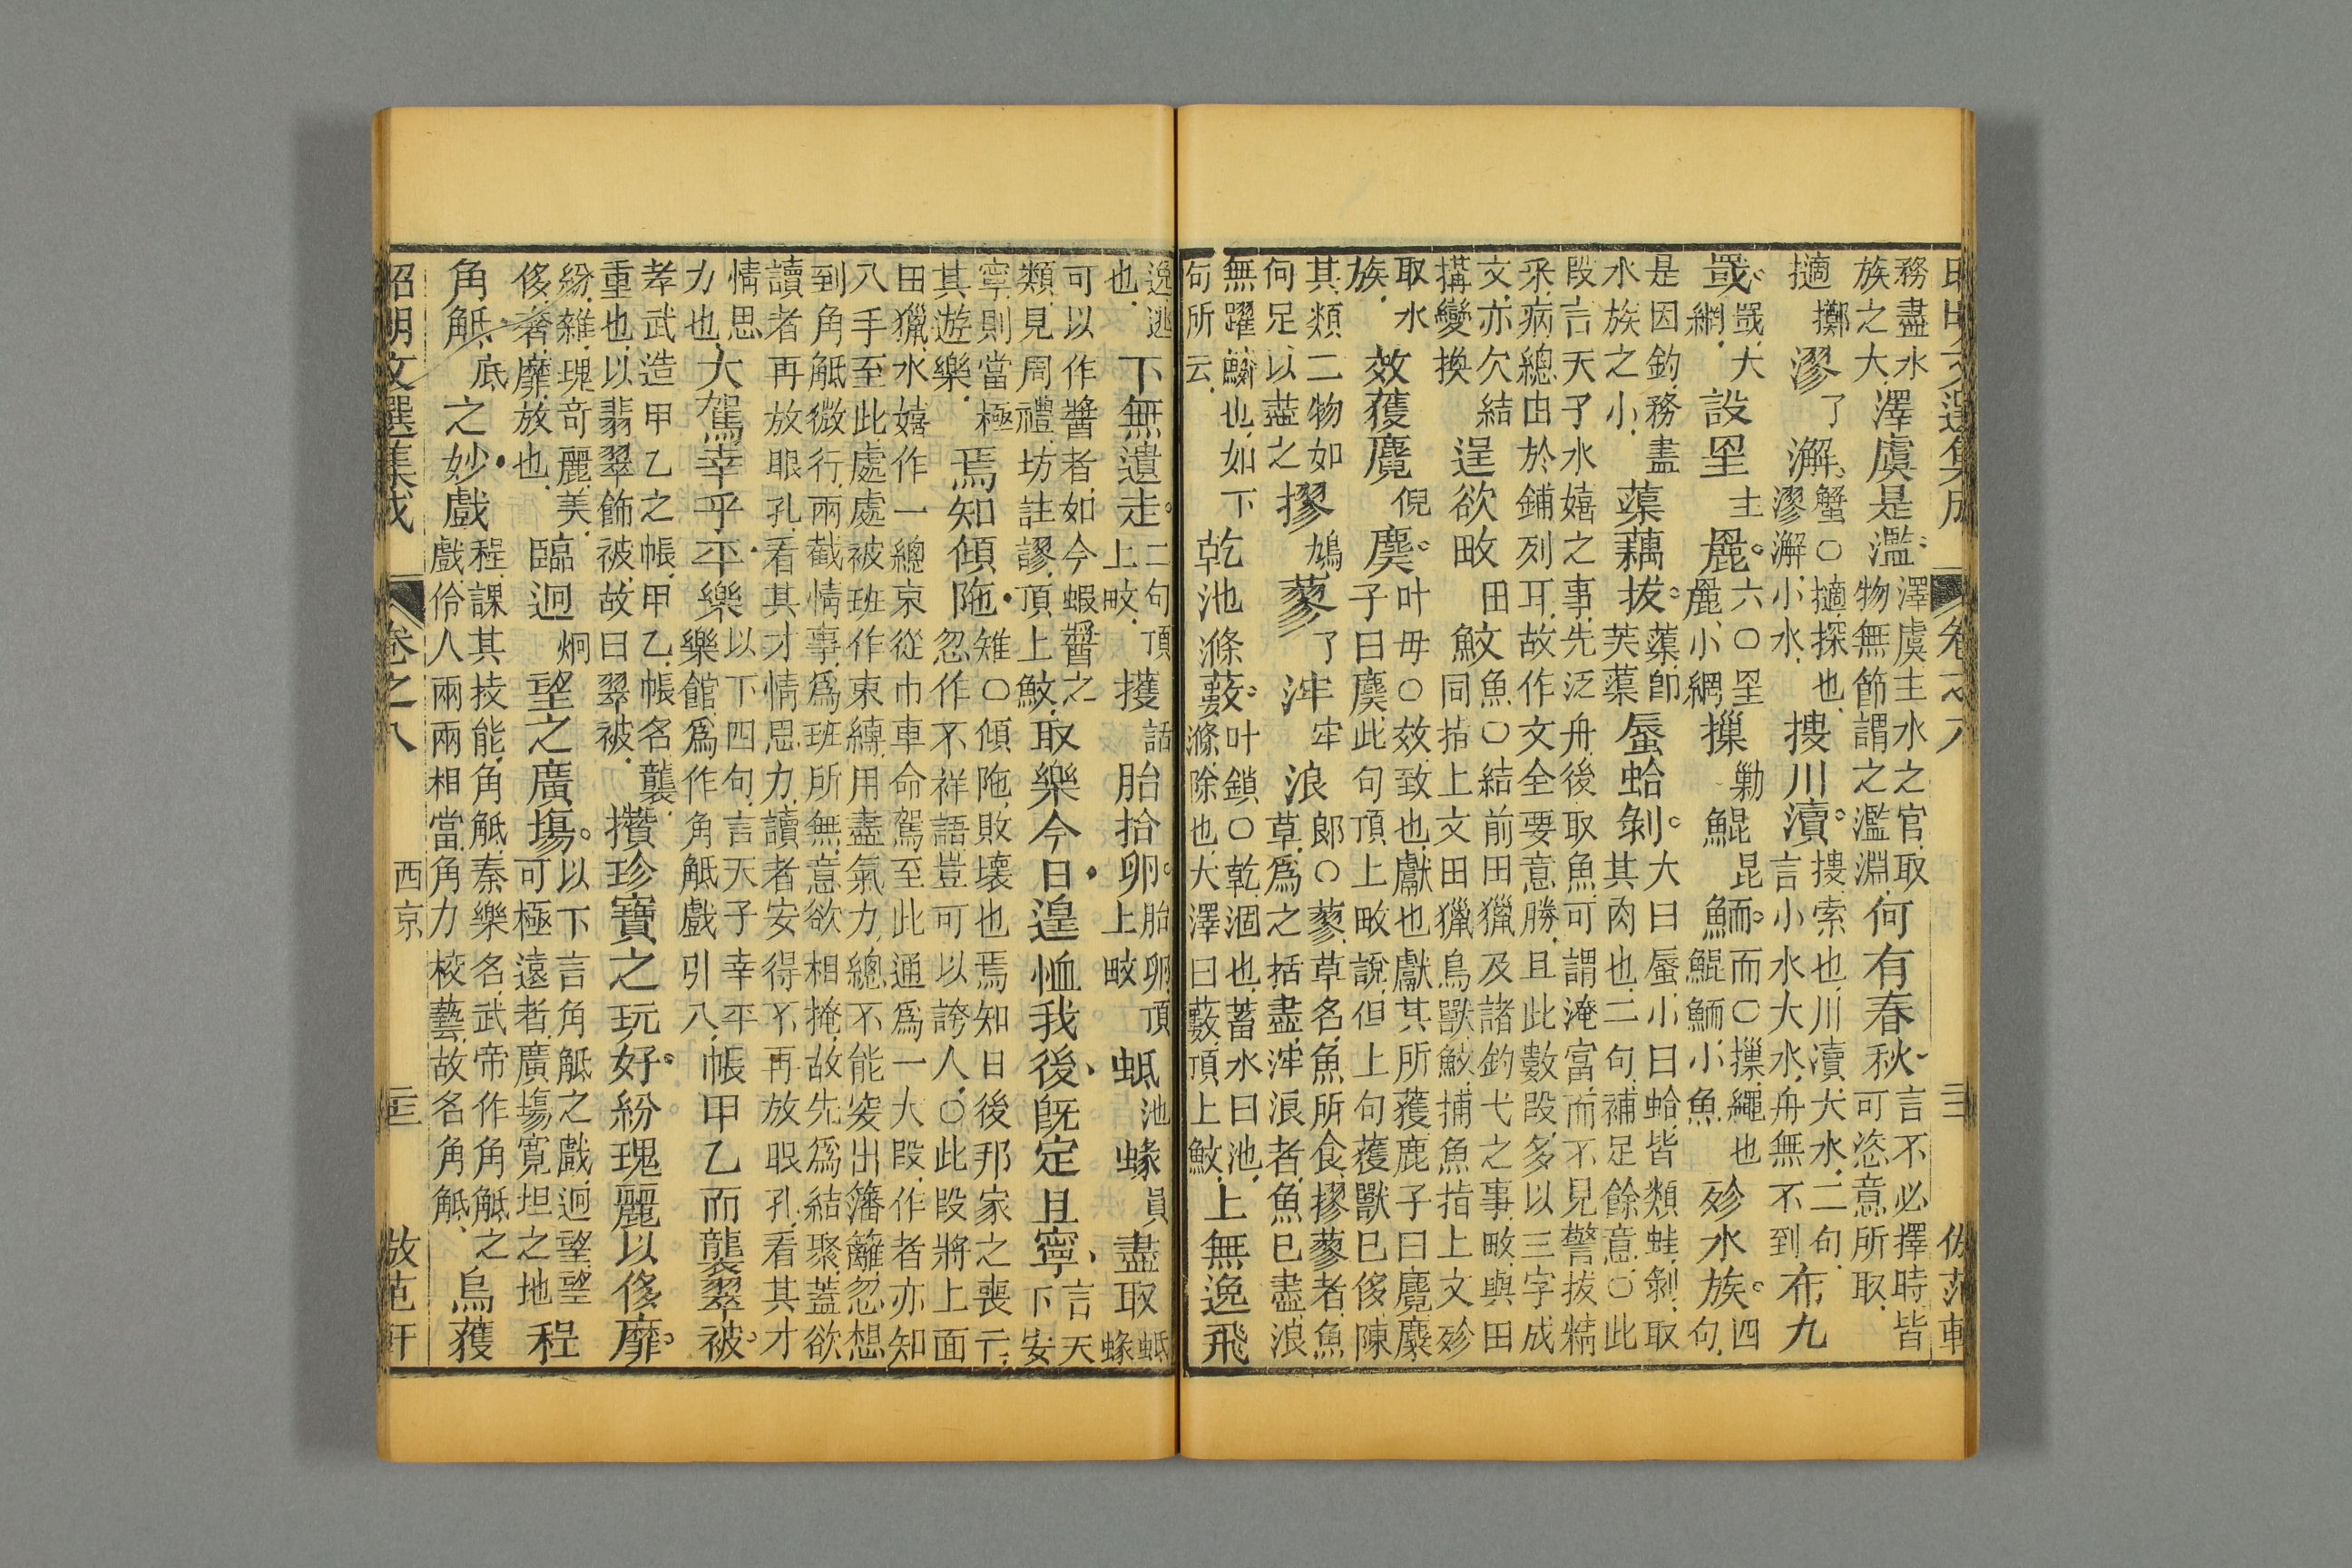 昭明文選集成 卷之八 倣范軒
務盡水族之大澤虞是濫澤虞主水之官取物無節謂之濫淵何有春秋言不必擇時皆可恣意所取
擿擲漻了澥蟹○擿探也漻澥小水搜川瀆搜索也川瀆大水二句言小水大水舟無不到布九
罭罭大網設罜主䍡六○罜䍡小網摷勦鯤昆鮞而○摷繩也鯤鮞小魚殄水族四句
是因釣務盡水族之小蕖藕拔蕖即芙蕖蜃蛤剝大曰蜃小曰蛤皆類蛙剝取其肉也二句補足餘意○此
段言天子水嬉之事先泛舟後取魚可謂淹富而不見警拔精采病總由於鋪列耳故作文全要意勝且此數段多以三字成
文亦欠結搆變換逞欲畋田魰魚○結前田獵及諸釣弋之事畋與田同指上文田獵鳥獸魰捕魚指上文殄
取水族效獲麑倪麌叶毋○效致也獻也獻其所獲鹿子曰麑麋子曰麌此句頂上畋說但上句獲獸已侈陳
其類二物如何足以盡之摎鳩蓼了浶牢浪郎○蓼草名魚所食摎蓼者魚草爲之括盡浶浪者魚已盡浪
無躍鱗也如下句所云乾池滌藪叶鎖○乾涸也蓄水曰池滌除也大澤曰藪頂上魰上無逸飛
逸逃也下無遺走二句頂上畋擭話胎拾卵胎卵頂上畋蚳池蝝員盡取蚳蝝
可以作醬者如今蝦醬之類見周禮坊註謬頂上魰取樂今日遑恤我後旣定且寧言天下安
寧則當極其遊樂焉知傾陁雉○傾陁敗壞也焉知日後邦家之喪亡忽作不祥語豈可以誇人○此段將上面
田獵水嬉作一總束從巾車命駕至此通爲一大段作者亦知八手至此處處被班作束縛用盡氣力總不能突出籓籬忽想
到角觝微行兩截情事爲班所無意欲相掩故先爲結聚蓋欲讀者再放眼孔看其才情思力讀者安得不再放眼孔看其才
情思力也大駕幸乎平樂以下四句言天子幸平樂館爲作角觝戲引八帳甲乙而襲翠被
孝武造甲乙之帳甲乙帳名襲重也以翡翠飾被故曰翠被攢珍寶之玩好紛瑰麗以侈靡
紛雜瑰奇麗美侈奢靡放也臨迥炯望之廣塲以下言角觝之戲迥望望可極遠者廣塲寬坦之地程
角觝底之妙戲程課其技能角觝秦樂名武帝作角觝之戲伶人兩兩相當角力校藝故名角觝烏獲
昭明文選集成 卷之八 西京 倣范軒